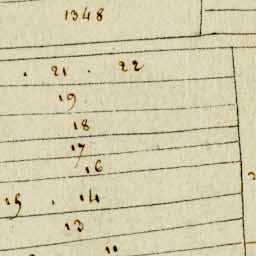 1348
. 21 . 22
19
18
17
16
15 . 14
13
11